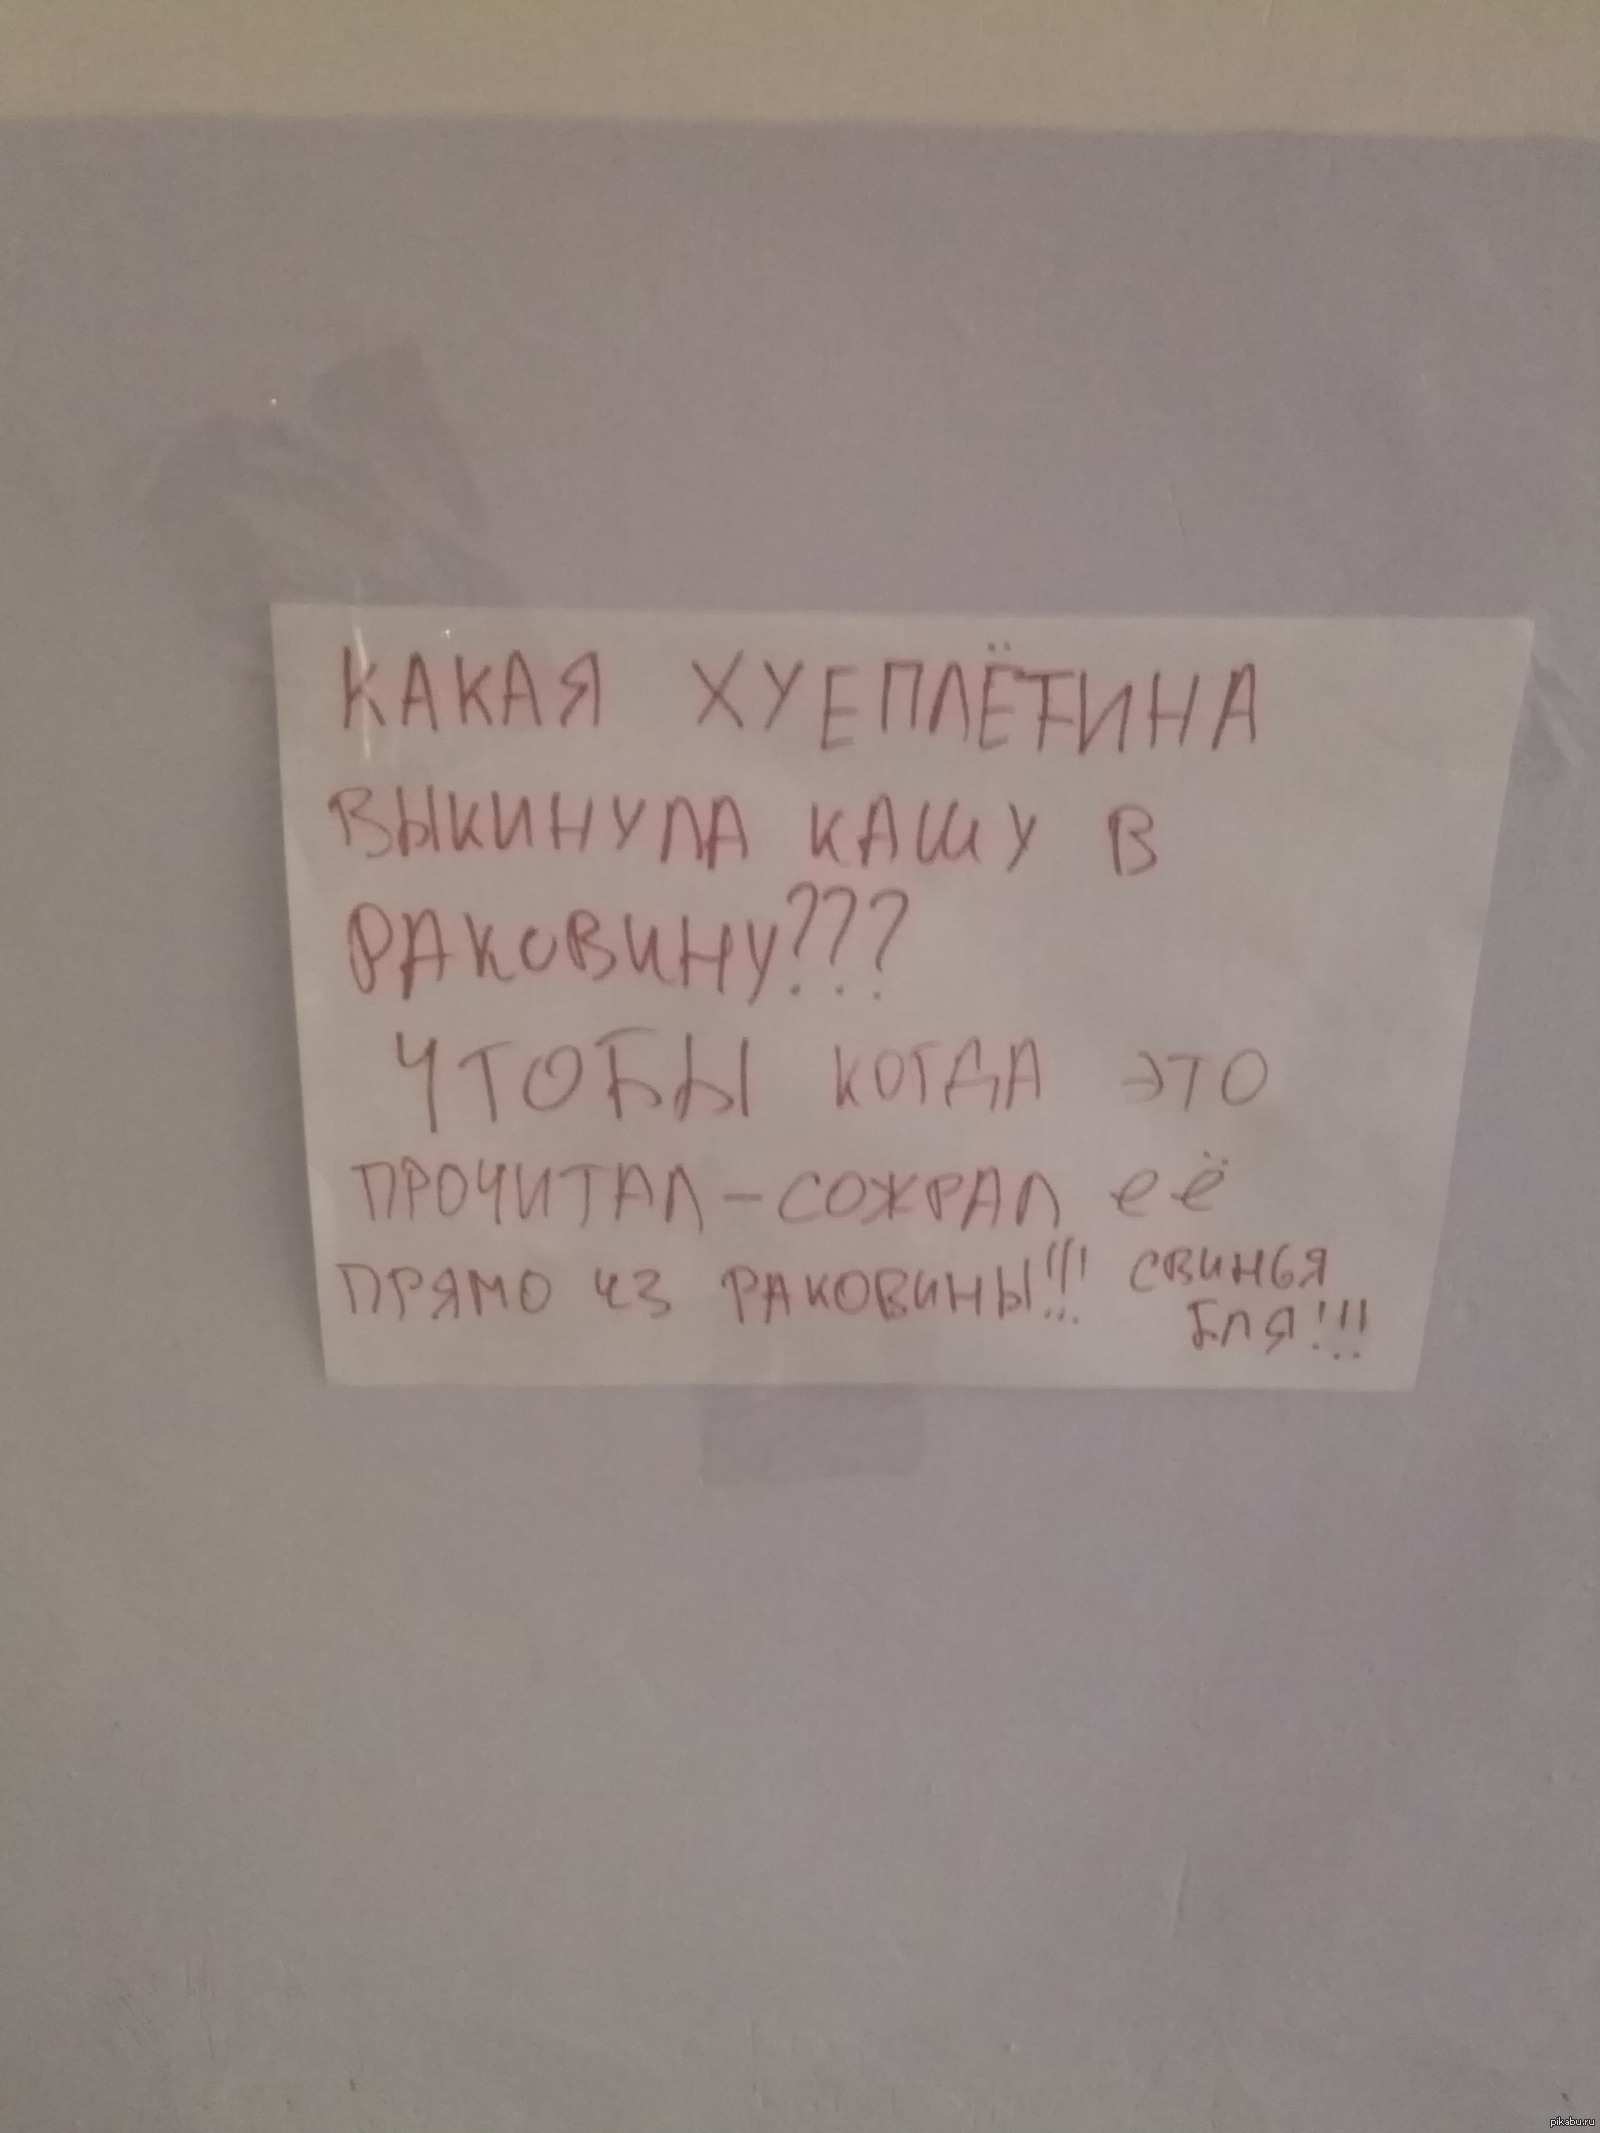 КАКАЯ ХУЕПЛЁТИНА
ВЫКИНУЛА КАШУ В
РАКОВИНУ???
ЧТОБЫ КОГДА ЭТО
ПРОЧИТАЛ-СОЖРАЛ её
ПРЯМО ИЗ РАКОВИНЫ!!! СВИНЬЯ
БЛЯ!!!
pikabu.ru